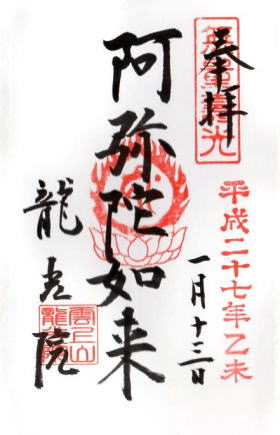 奉拝
無量壽光
平成二十七年乙未
一月十三日
阿弥陀如来
龍光院